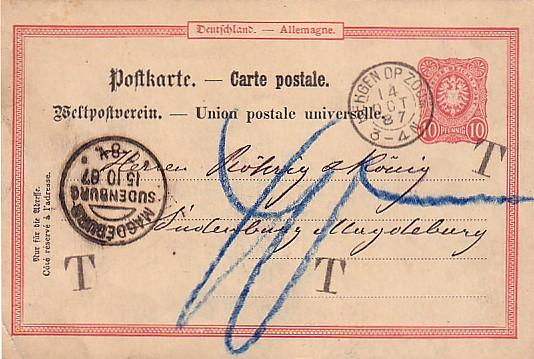 Deutschland. — Allemagne.
Postkarte. — Carte postale.
Weltpostverein. — Union postale universelle.
BERGEN OP ZOOM
14
OCT
87
3-4N
10 PFENNIG 10
T
Herren Röhrig & König
Sudenburg Magdeburg
MAGDEBURG
SUDENBURG
15 10 87
T
T
Nur für die Adresse.
Côté réservé à l'adresse.